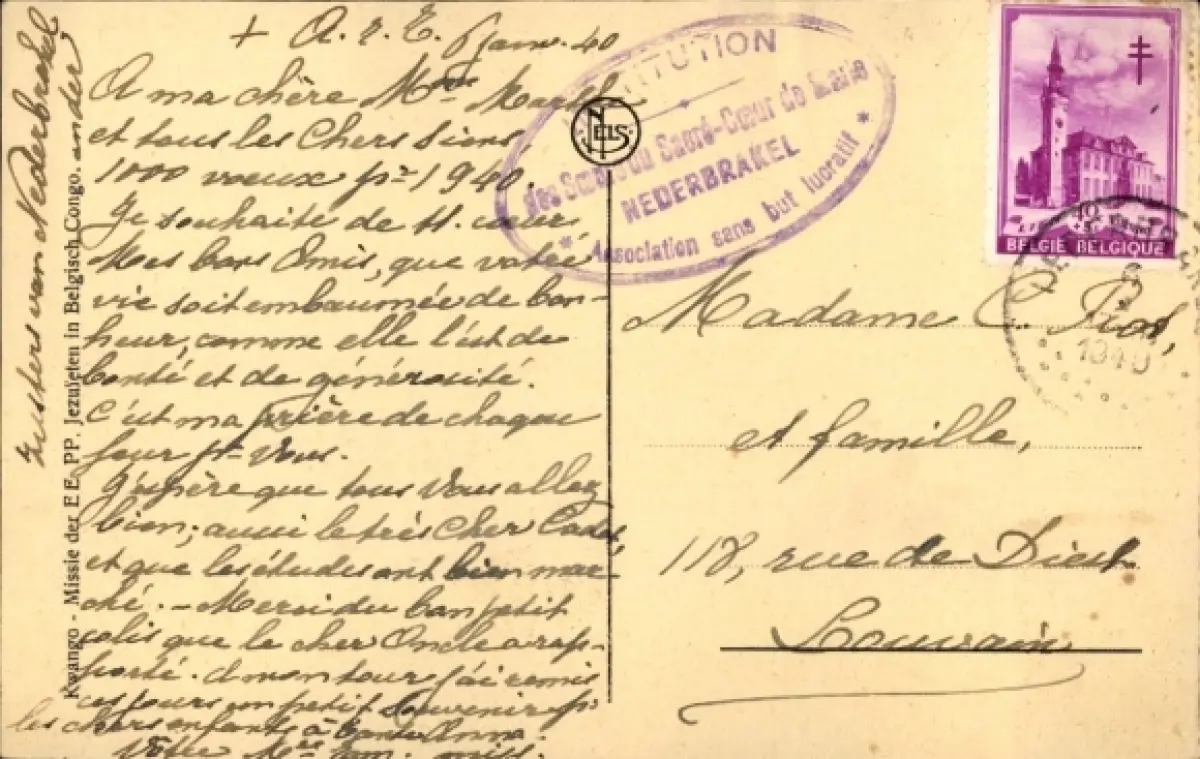 + A. r. E. 6 janv. 40
A ma chère Mme
et tous les Chers siens,
1000 voeux pr 1940.
Je souhaite de tt. coeur
Mes bons Amis, que votre
vie soit embaumée de bon-
heur, comme elle l'est de
bonté et de générosité.
C'est ma prière de chaque
jour pr Vous.
J'espère que tous Vous allez
bien; aussi le très Cher Cadet,
et que les études ont bien mar-
ché. - Merci du bon petit
colis que le cher Oncle a rap-
porté. A mon tour j'ai remis
ces jours un petit Souvenir pr
les chers enfants à tante Anna.
Votre
Zusters van Nederbrakel
Kwango - Missie der E E. PP. Jezuïeten in Belgisch Congo.
NELS
INSTITUTION
des Soeurs du Sacré-Coeur de Marie
NEDERBRAKEL
* Association sans but lucratif *
BELGIE BELGIQUE
1940
Madame C.
et famille,
118, rue de Diest
Louvain